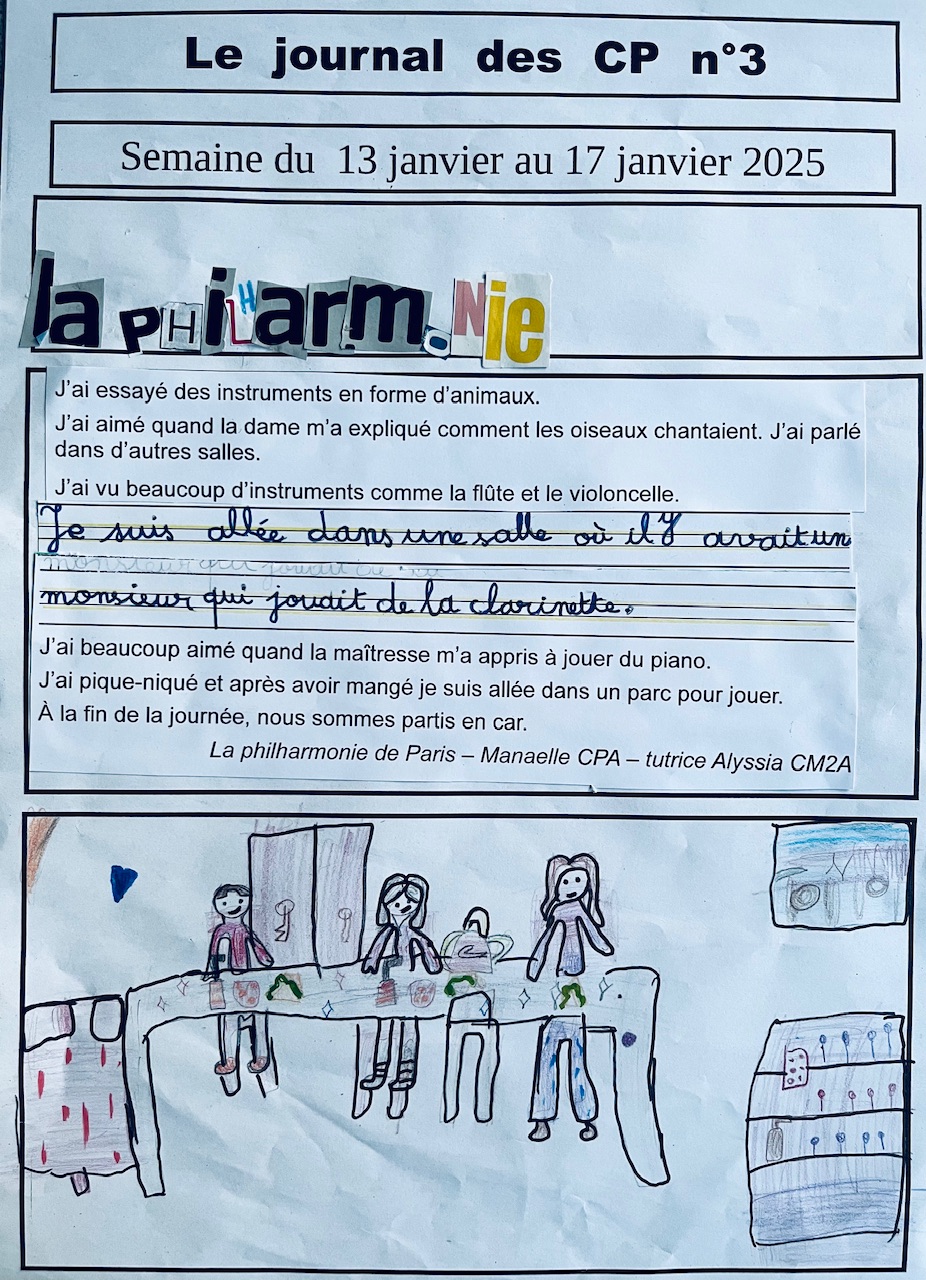 Le journal des CP n°3
Semaine du 13 janvier au 17 janvier 2025
la PHiLHarmoNie
J'ai essayé des instruments en forme d'animaux.
J'ai aimé quand la dame m'a expliqué comment les oiseaux chantaient. J'ai parlé
dans d'autres salles.
J'ai vu beaucoup d'instruments comme la flûte et le violoncelle.
Je suis allée dans une salle où il y avait un
monsieur qui jouait de la
monsieur qui jouait de la clarinette.
J'ai beaucoup aimé quand la maîtresse m'a appris à jouer du piano.
J'ai pique-niqué et après avoir mangé je suis allée dans un parc pour jouer.
À la fin de la journée, nous sommes partis en car.
La philharmonie de Paris – Manaelle CPA – tutrice Alyssia CM2A